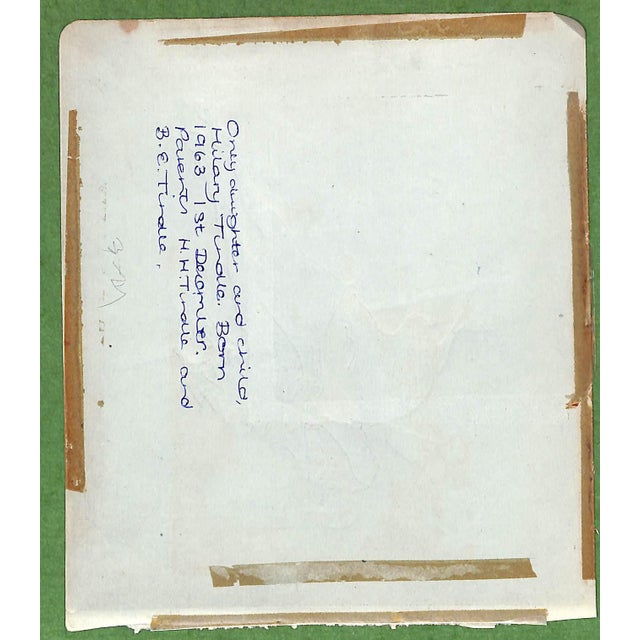 Only daughter and child,
Hilary Tindle. Born
1963 1st December.
Parents H.H.Tindle and
B.E.Tindle,